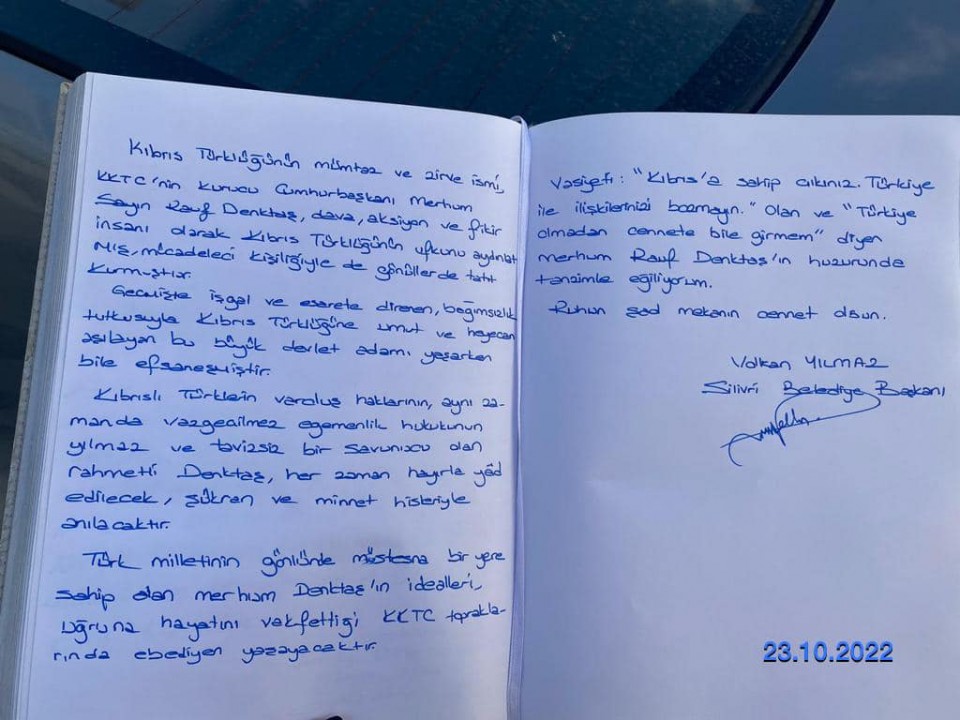 Kıbrıs Türklüğünün mümtaz ve zirve ismi,
KKTC'nin kurucu Cumhurbaşkanı merhum
Sayın Rauf Denktaş, dava, aksiyon ve fikir
insanı olarak Kıbrıs Türklüğünün ufkunu aydınlat
mış, mücadeleci kişiliğiyle de gönüllerde taht
kurmuştur.
Geçmişte işgal ve esarete direnen, bağımsızlık
tutkusuyla Kıbrıs Türklüğüne umut ve heyecan
aşılayan bu büyük devlet adamı yaşarken
bile efsaneşmiştir.
Kıbrıslı Türklerin varoluş haklarının, aynı za-
manda vazgeçilmez egemenlik hukukunun
yılmaz ve tavizsiz bir savunucu olan
rahmetli Denktaş, her zaman hayırla yâd
edilecek, şükran ve minnet hisleriyle
anılacaktır.
Türk milletinin gönlünde müstesna bir yere
sahip olan merhum Denktaş'ın idealleri,
uğruna hayatını vakfettiği KKTC toprakla-
rında ebediyen yaşayacaktır.
Vasiyeti: "Kıbrıs'a sahip çıkınız. Türkiye
ile ilişkilerinizi bozmayın." Olan ve "Türkiye
olmadan cennete bile girmem" diyen
merhum Rauf Denktaş'ın huzurunda
tanzimle eğiliyorum.
Ruhun şad mekanın cennet olsun.
Volkan YILMAZ
Silivri Belediye Başkanı
23.10.2022